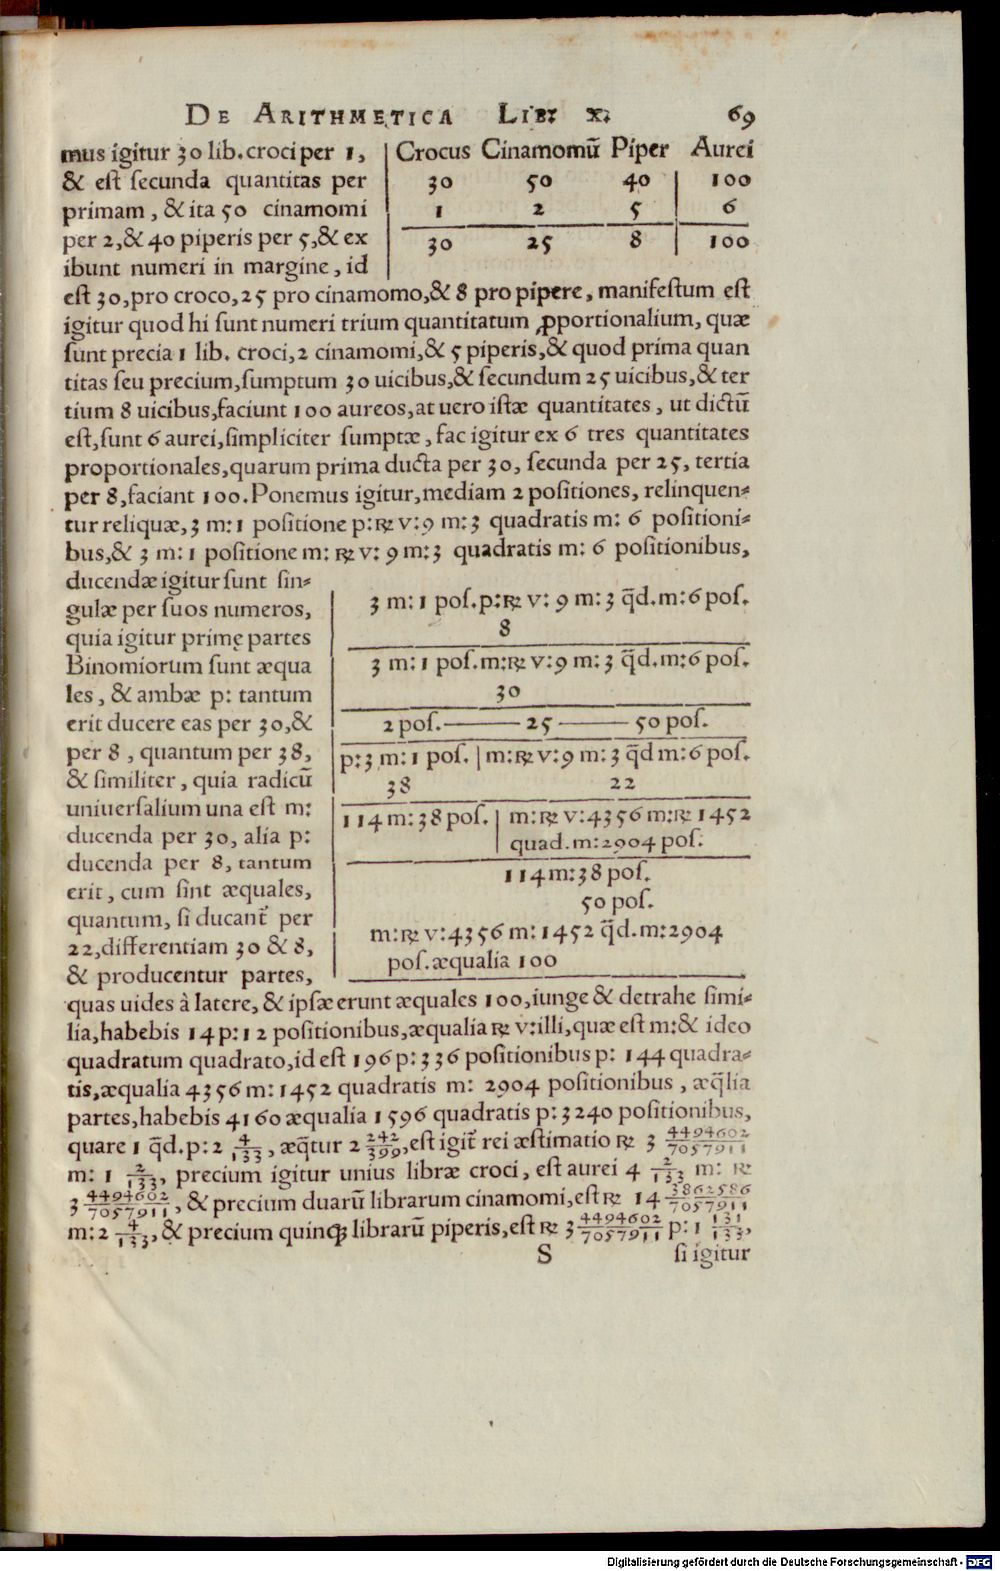 DE ARITHMETICA LIB: X: 69
mus igitur 30 lib. croci per 1,
& est secunda quantitas per
primam, & ita 50 cinamomi
per 2, & 40 piperis per 5, & ex
ibunt numeri in margine, id
Crocus Cinamomũ Piper Aurei
30 50 40 100
1 2 5 6
30 25 8 100
est 30, pro croco, 25 pro cinamomo, & 8 pro pipere, manifestum est
igitur quod hi sunt numeri trium quantitatum ꝓportionalium, quæ
sunt precia 1 lib. croci, 2 cinamomi, & 5 piperis, & quod prima quan
titas seu precium, sumptum 30 uicibus, & secundum 25 uicibus, & ter
tium 8 uicibus, faciunt 100 aureos, at uero istæ quantitates, ut dictũ
est, sunt 6 aurei, simpliciter sumptæ, fac igitur ex 6 tres quantitates
proportionales, quarum prima ducta per 30, secunda per 25, tertia
per 8, faciant 100. Ponemus igitur, mediam 2 positiones, relinquen⸗
tur reliquæ, 3 m: 1 positione p: ℞ v: 9 m: 3 quadratis m: 6 positioni⸗
bus, & 3 m: 1 positione m: ℞ v: 9 m: 3 quadratis m: 6 positionibus,
ducendæ igitur sunt sin⸗
gulæ per suos numeros,
quia igitur primę partes
Binomiorum sunt æqua
les, & ambæ p: tantum
erit ducere eas per 30, &
per 8, quantum per 38,
& similiter, quia radicũ
uniuersalium una est m:
ducenda per 30, alia p:
ducenda per 8, tantum
erit, cum sint æquales,
quantum, si ducant̃ per
22, differentiam 30 & 8,
& producentur partes,
3 m: 1 pos. p: ℞ v: 9 m: 3 q̃d. m: 6 pos.
8
3 m: 1 pos. m: ℞ v: 9 m: 3 q̃d. m: 6 pos.
30
2 pos. ——— 25 ——— 50 pos.
p: 3 m: 1 pos. | m: ℞ v: 9 m: 3 q̃d m: 6 pos.
38 22
114 m: 38 pos. | m: ℞ v: 4356 m: ℞ 1452
quad. m: 2904 pos.
114 m: 38 pos.
50 pos.
m: ℞ v: 4356 m: 1452 q̃d. m: 2904
pos. æqualia 100
quas uides à latere, & ipsæ erunt æquales 100, iunge & detrahe simi⸗
lia, habebis 14 p: 12 positionibus, æqualia ℞ v: illi, quæ est m: & ideo
quadratum quadrato, id est 196 p: 336 positionibus p: 144 quadra⸗
tis, æqualia 4356 m: 1452 quadratis m: 2904 positionibus, æq̃lia
partes, habebis 4160 æqualia 1596 quadratis p: 3240 positionibus,
quare 1 q̃d. p: 2 4/133, æq̃tur 2 242/399, est igit̃ rei æstimatio ℞ 3 4494602/7057911
m: 1 2/133, precium igitur unius libræ croci, est aurei 4 2/133 m: ℞
3 4494602/7057911, & precium duarũ librarum cinamomi, est ℞ 14 3862586/7057911
m: 2 4/133, & precium quinq; librarũ piperis, est ℞ 3 4494602/7057911 p: 1 131/133,
S si igitur
Digitalisierung gefördert durch die Deutsche Forschungsgemeinschaft - DFG